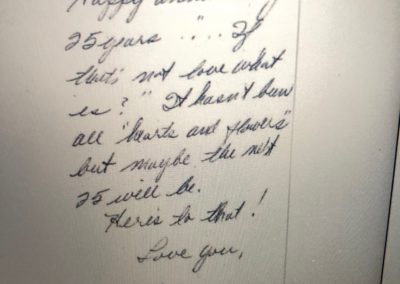 Happy
25 years "... If
that's not love what
is?" It hasn't been
all "hearts and flowers"
but maybe the next
25 will be.
Here's to that!
Love you,